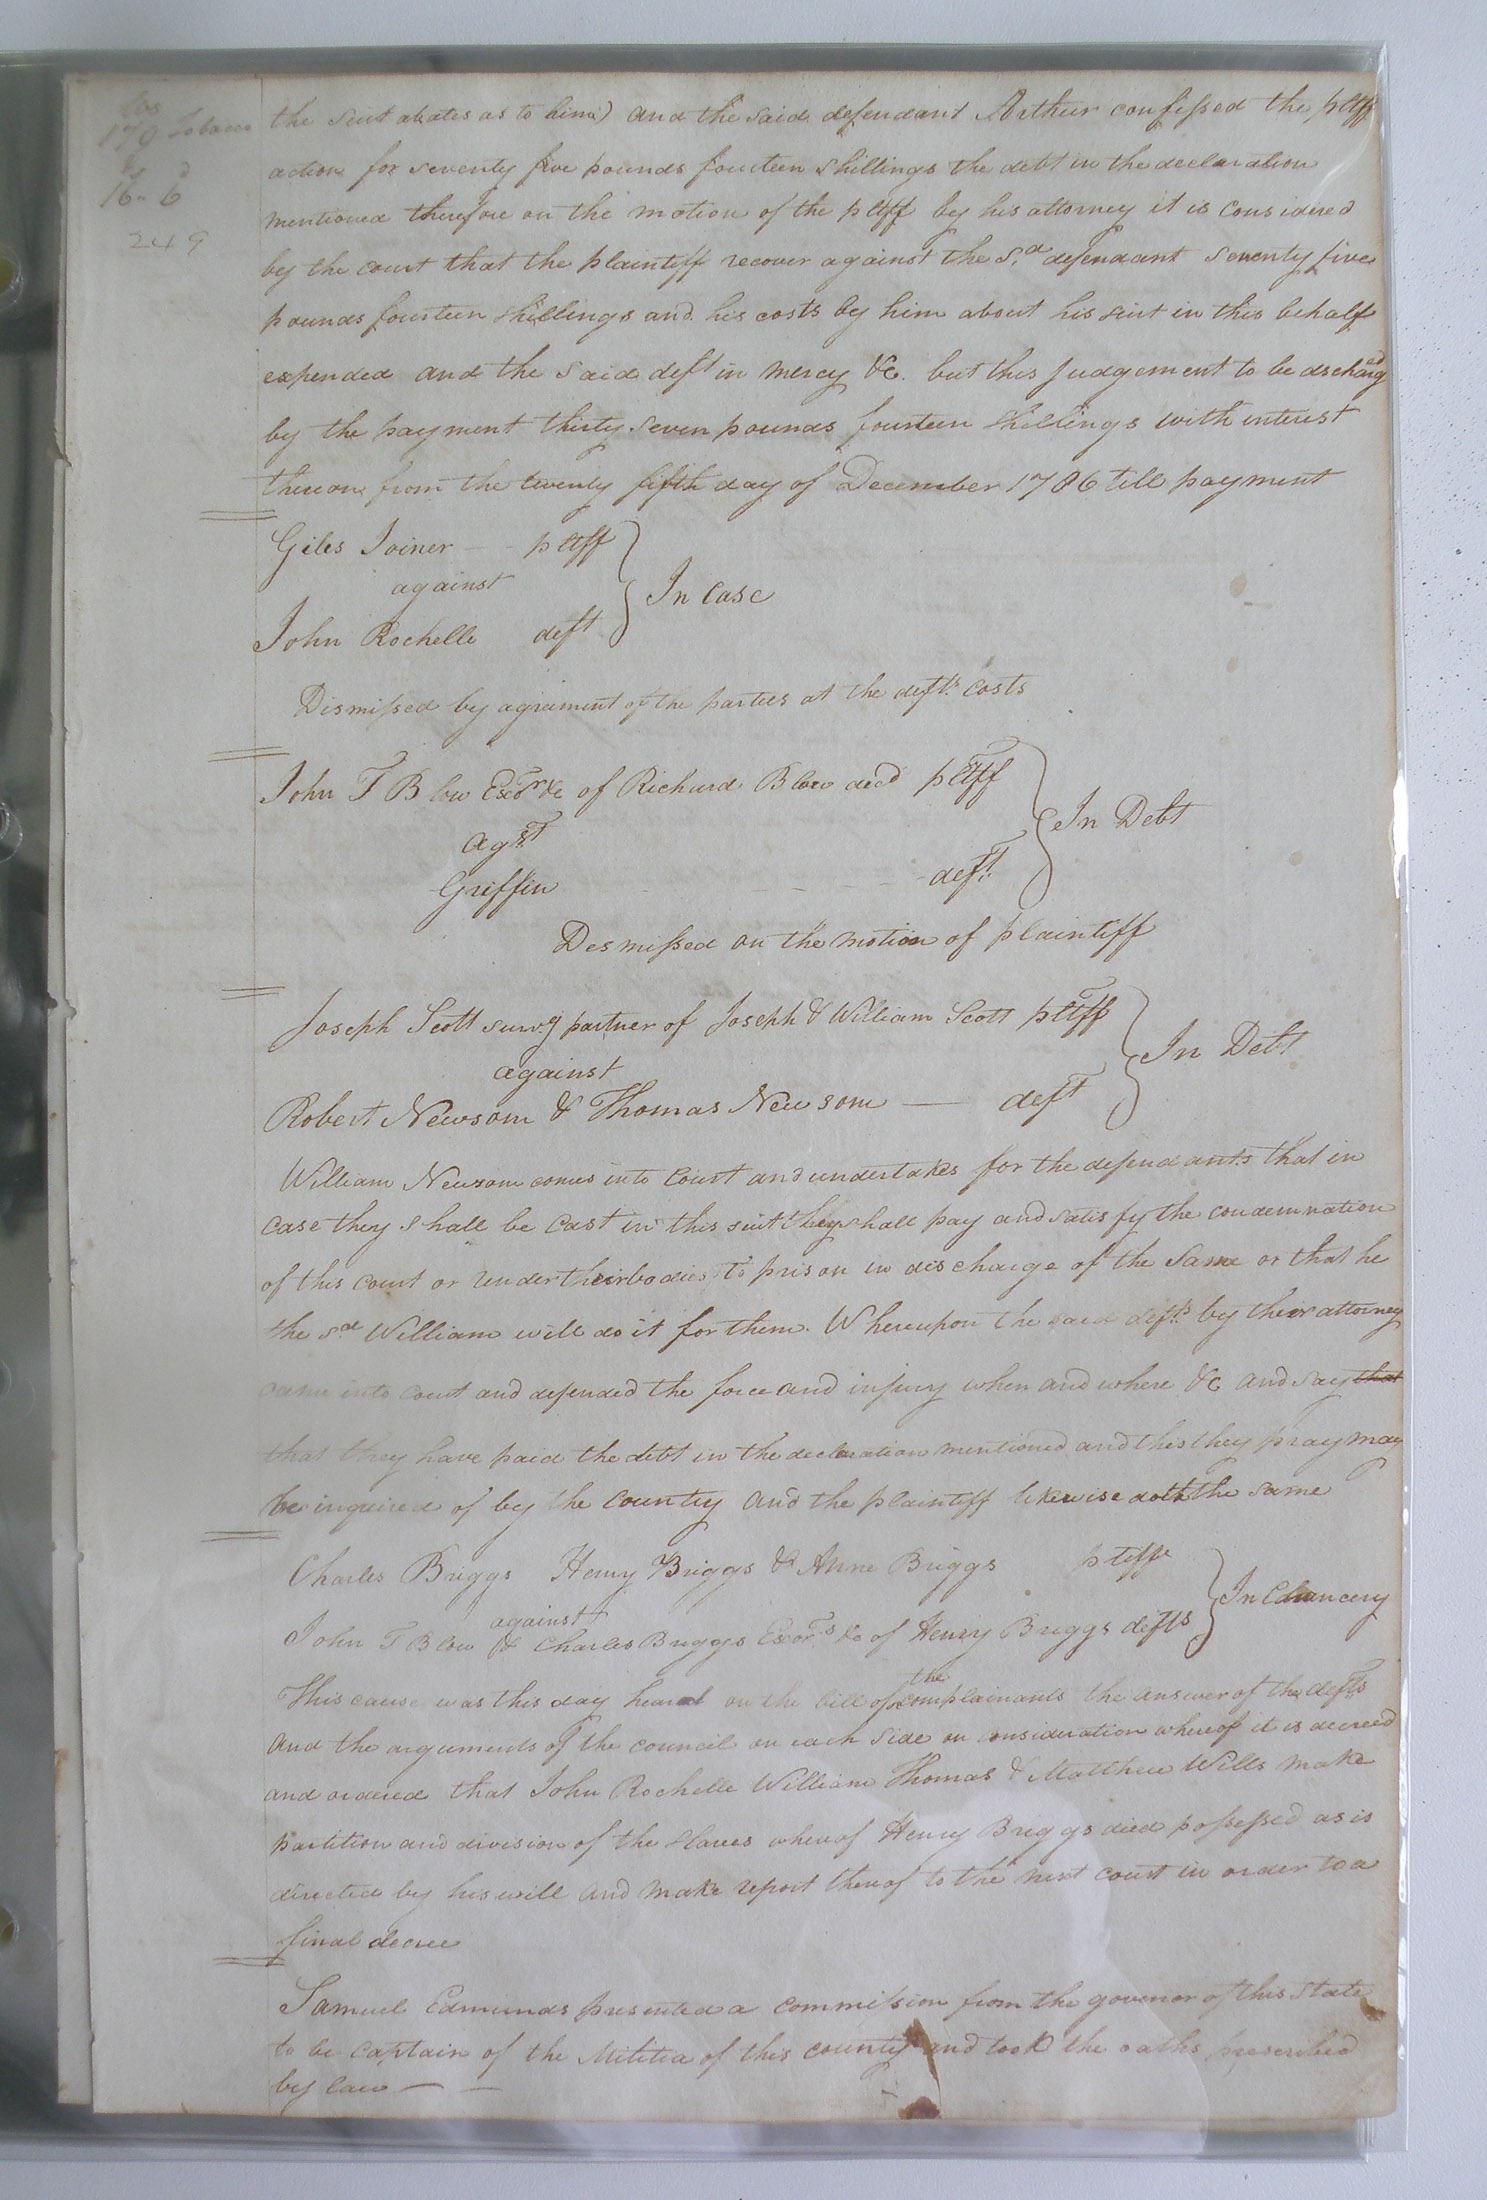 179 Tobacco
16 6
249
the suit abates as to him) and the said defendant Arthur confessed the pltff
action for seventy five pounds fourteen shillings the debt in the declaration
mentioned therefore on the motion of the pltff by his attorney it is considered
by the court that the plaintiff recover against the sd defendant seventy five
pounds fourteen shillings and his costs by him about his suit in this behalf
expended and the said deft in mercy &c. but this judgement to be dischargd
by the payment thirty seven pounds fourteen shillings with interest
thereon from the twenty fifth day of December 1786 till payment
Giles Joiner - - pltff
against
In Case
John Rochelle deft
Dismissed by agrament of the parties at the defts costs
John T Blow Exor &c of Richard Blow decd pltff
In Debt
agst
Griffin - - - - deft
Desmissed on the motion of plaintiff
Joseph Scott survg partner of Joseph & William Scott pltff
In Debt
against
Robert Newsom & Thomas Newsom — deft
William Newsom comes into Court and undertakes for the defendants that in
case they shall be cast in this suit they shall pay and satisfy the condemnation
of this court or render their bodies to prison in discharge of the same or that he
the sd William will do it for them. Whereupon the said defts by their attorney
came into court and defended the force and injury when and where &c and say that
that they have paid the debt in the declaration mentioned and this they pray may
be inquired of by the country and the plaintiff likewise doth the same
Charles Briggs Henry Briggs & Anne Briggs pltffs
against
In Chancery
John T Blow & Charles Briggs Exors &c of Henry Briggs defts
This cause was this day heard on the bill of the complainants the answer of the defts
and the arguments of the council on each side on consideration whereof it is decreed
and ordered that John Rochelle William Thomas & Matthew Wills make
partition and division of the slaves whereof Henry Briggs died possessed as is
directed by his will and make report thereof to the next court in order to a
final decree
Samuel Edmunds presented a commission from the govenor of this State
to be captain of the Militia of this county and took the oaths prescribed
by law — —